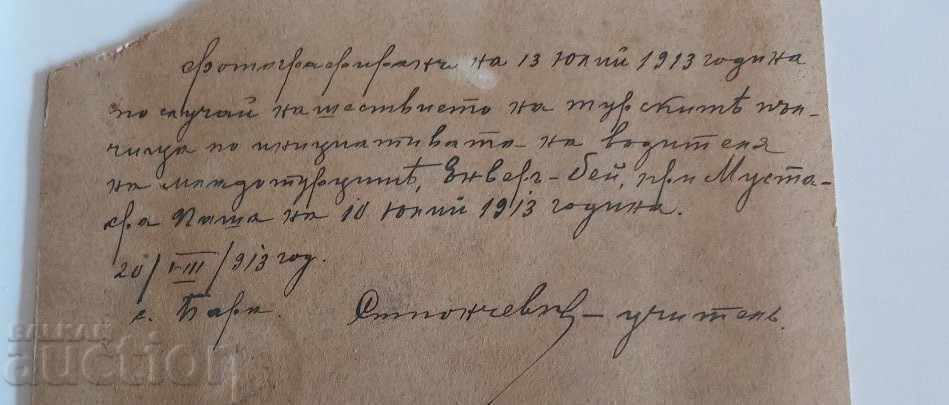 Фотографиранъ на 13 Юлий 1913 година
по случай нашествието на турскитѣ пъл-
чища по инициативата на водителя
на младотурцитѣ, Енверъ-бей, при Муста-
фа Паша на 10 Юлий 1913 година.
20/VIII/913 год.
с.
Стоянчевъ – учитель.
БАЛКАН
auction